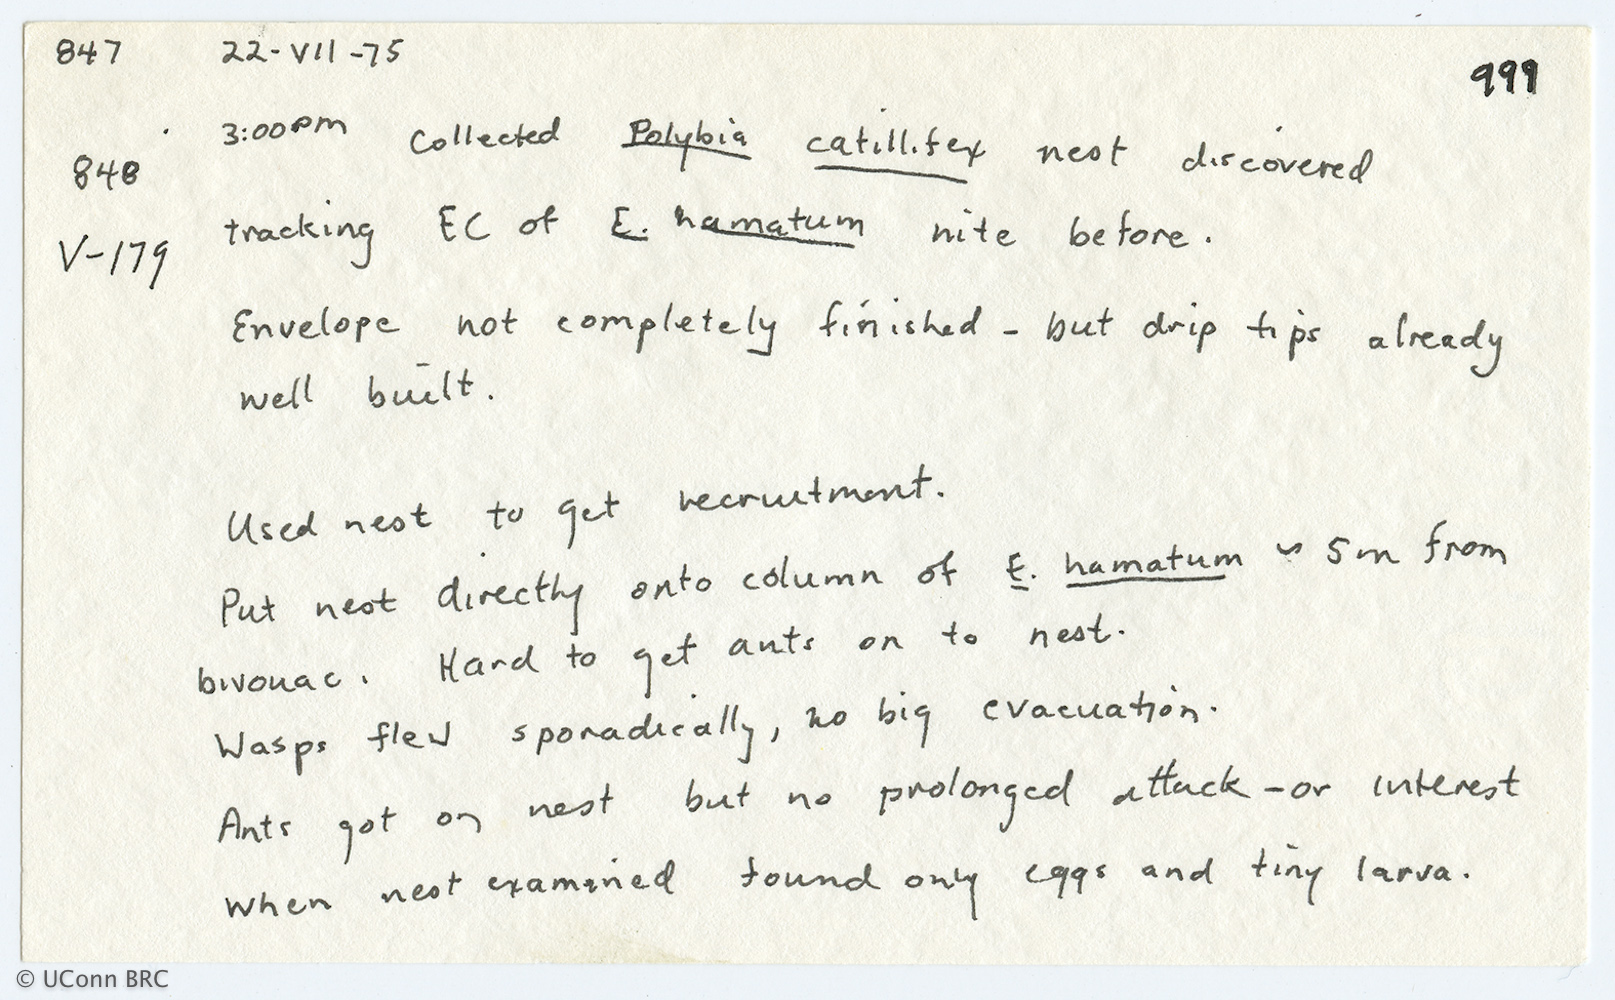 847 22-VII-75
999
3:00pm Collected Polybia catillifex nest discovered
848
tracking EC of E. hamatum nite before.
V-179
Envelope not completely finished - but drip tips already
well built.
Used nest to get recruitment.
Put nest directly onto column of E. hamatum ~ 5m from
bivouac. Hard to get ants on to nest.
Wasps flew sporadically, no big evacuation.
Ants got on nest but no prolonged attack - or interest
when nest examined found only eggs and tiny larva.
© UConn BRC